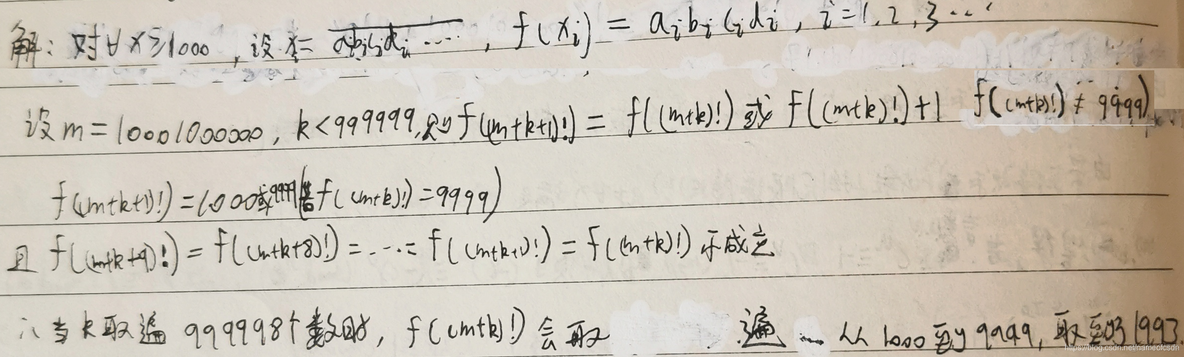 解:对∀x≥1000,设x= aᵢbᵢcᵢdᵢ……,f(xᵢ)=aᵢbᵢcᵢdᵢ,i=1,2,3…
设m=10001000000,k<999999,则f((m+k+1)!)= f((m+k)!)或f((m+k)!)+1 f((m+k)!)≠9999)
f((m+k+1)!)=1000或9999(若f((m+k)!)=9999)
且f((m+k+9)!)=f((m+k+8)!)=…=f((m+k+1)!)=f((m+k)!)不成立
∴当k取遍999998个数时,f((m+k)!)会取 遍 … 从1000到9999,取到1993